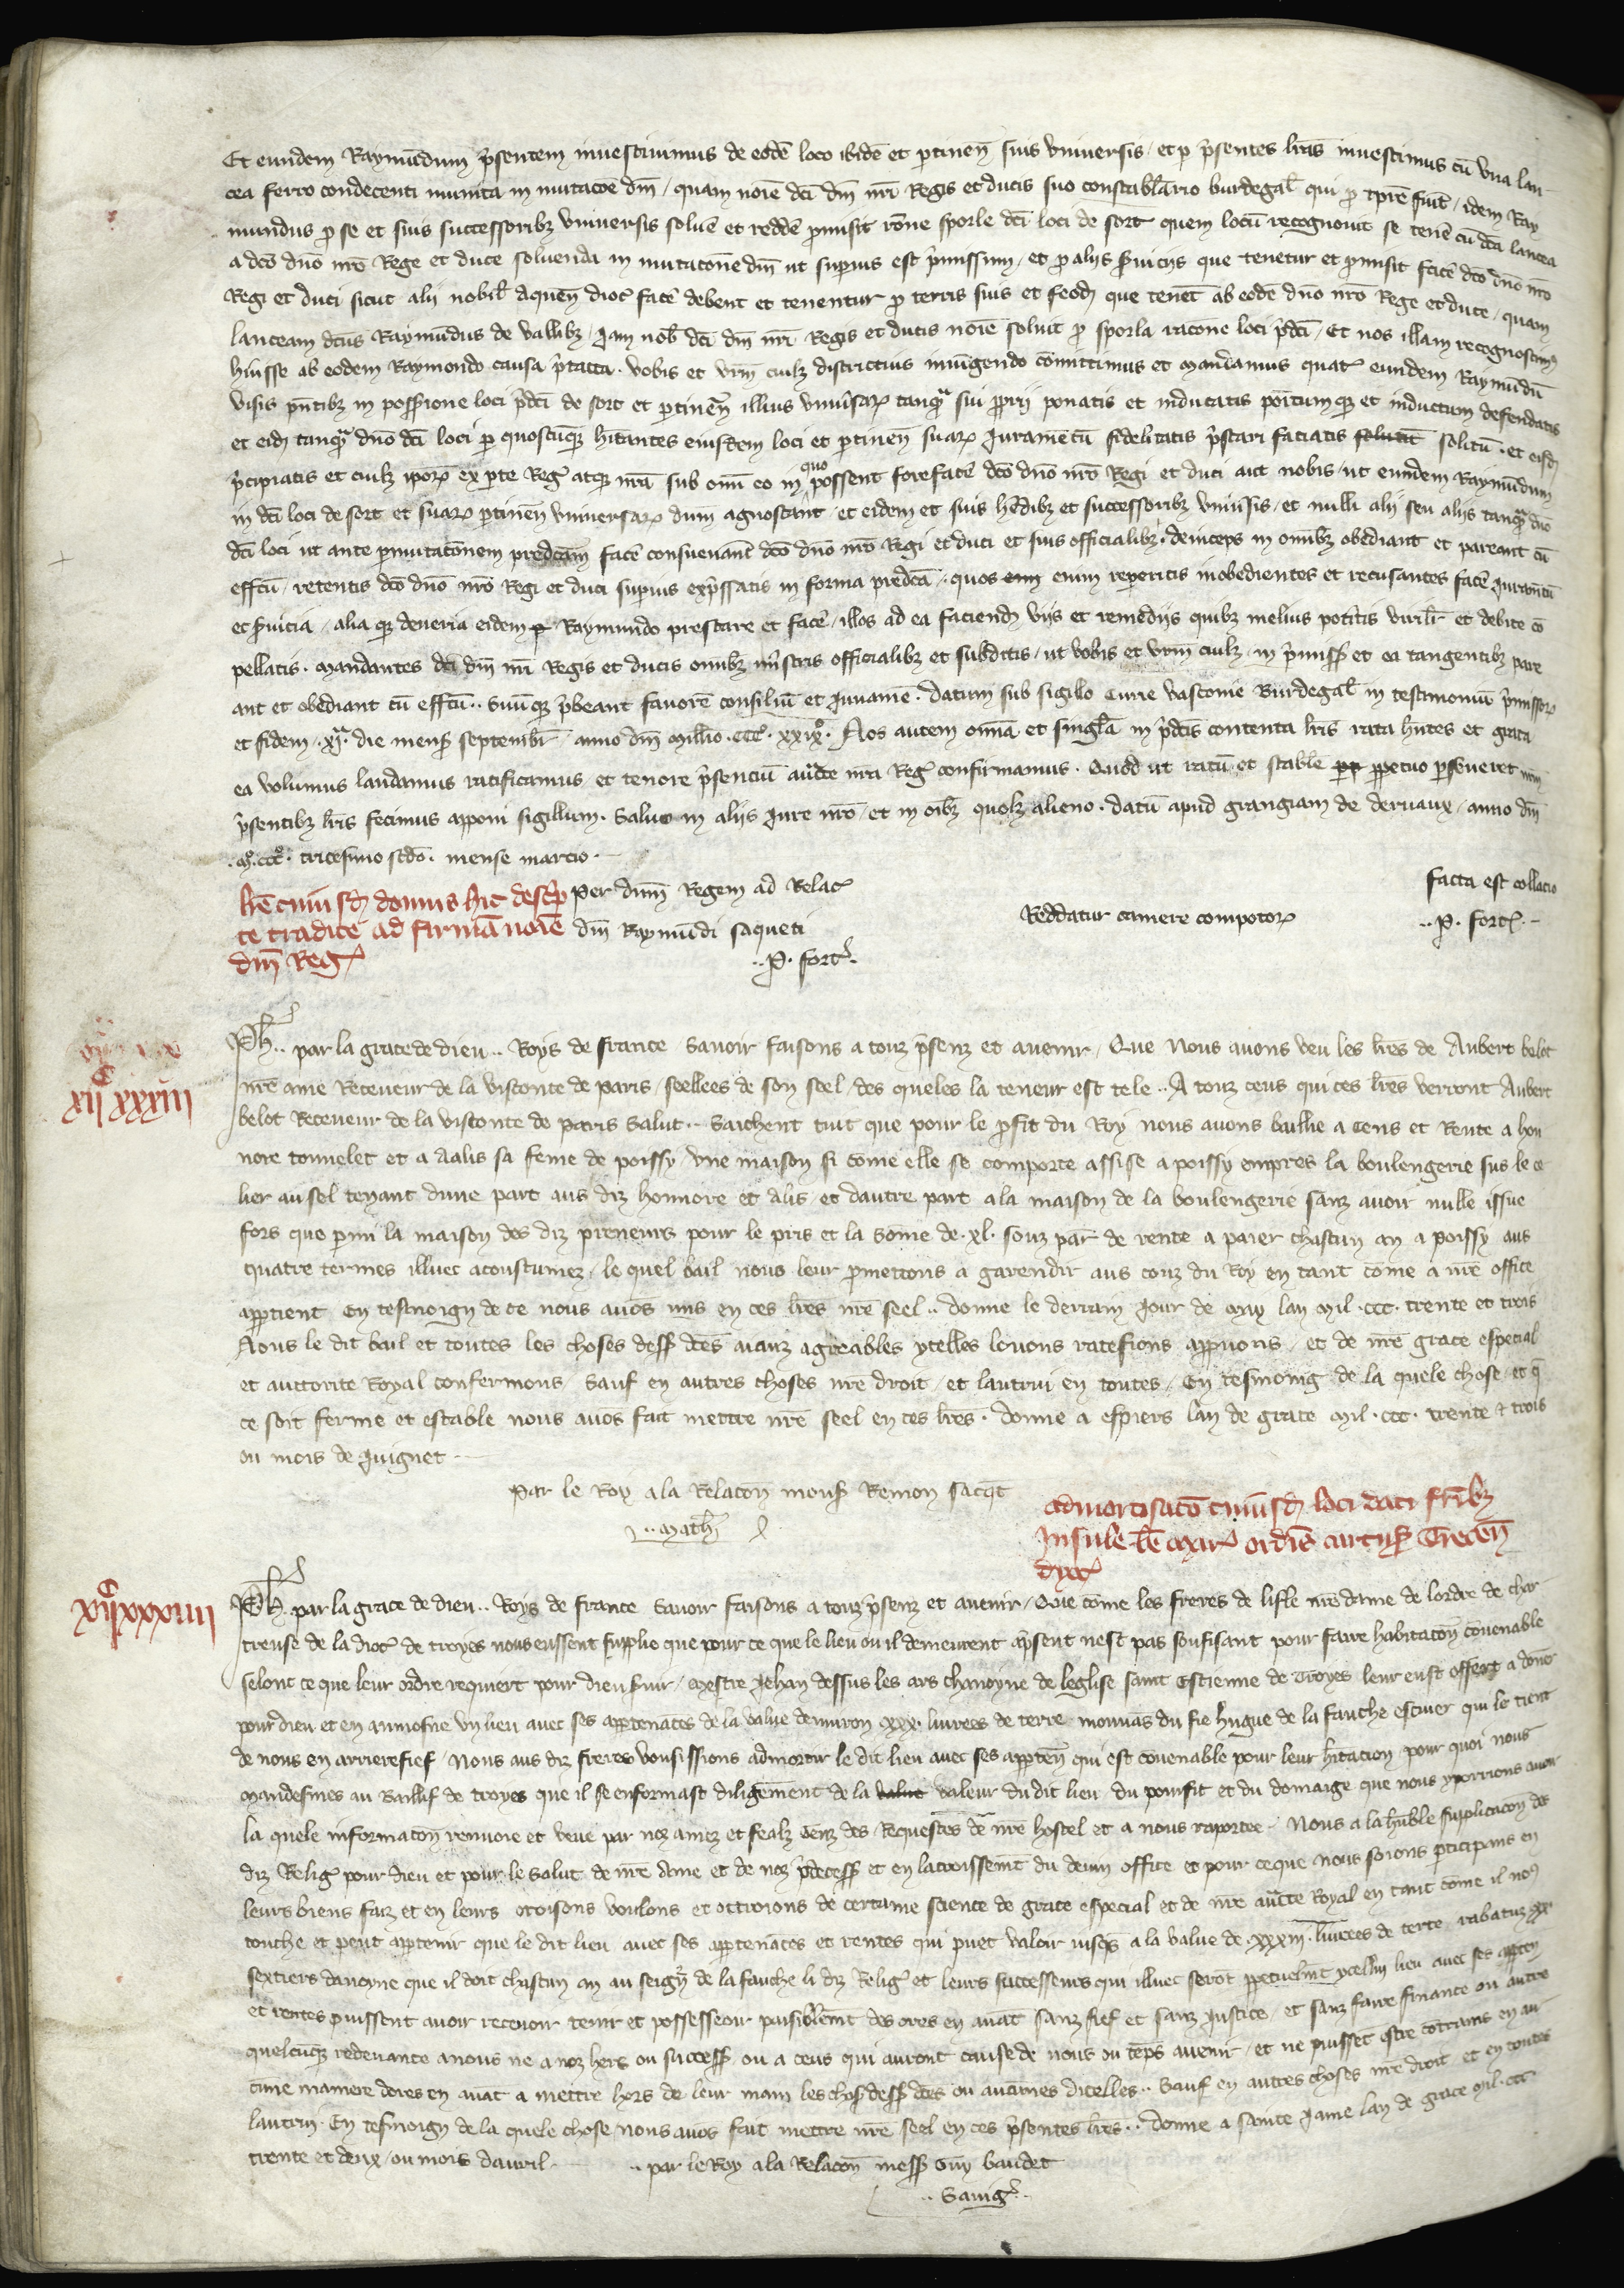 Et eundem Raymūdum p̄sentem inuestiuimus de eodē loco ibidē et ꝑtineñ suis vniuersis / et ꝑ p̄sentes lr̄as inuestimus cū vna lan
cea ferro condecenti munita in mutacōe dn̄i / quam noīe dc̄i dn̄i nr̄i Regis et ducis suo constabl̄ario burdegal̄ qui ꝓ tp̄re fu̾it / idem Ray
mundus ꝓ se et suis successoribꝫ vniuersis solue̾ et redde̾ ꝓmisit rōne sporle dc̄i loci de sort quem locū recognouit se tene̾ cū dc̄a lancea
a dc̄o dn̄o nr̄o Rege et duce soluenda in mutacōne dn̄i ut suꝑius est p̄missum / et ꝓ aliis s̾uiciis que tenetur et ꝓmisit face̾ dc̄o dn̄o nr̄o
Regi et duci sicut alii nobil̄ Aqueñ dioc̾ face̾ debent et tenentur ꝓ terris suis et feod̾ que tenēt ab eodē dn̄o nr̄o Rege et duce / quam
lanceam dc̄us Raymūdus de vallibꝫ / Jam nob̄ dc̄i dn̄i nr̄i Regis et ducis noīe soluit ꝓ sporla racōne loci p̄dc̄i / Et nos illam recognoscimꝰ
hu̾isse ab eodem Raymondo causa p̄tacta . vobis et vr̄m cuilꝫ districtius iniūgendo cōmittimus et mandamus quat̾ eundem Raimūdū
visis p̄ntibꝫ in possessione loci p̄dc̄i de sort et ꝑtineñ illius vniu̾saꝝ tanqᵃ sui ꝓprii ponatis et inducatis poītumqꝫ et inductum defendatis
et eidē tanqᵃ dn̄o dc̄i loci ꝑ quoscūqꝫ hītantes eiusdem loci et ꝑtineñ suaꝝ Juramētū fidelitatis p̄stari faciatis solutū solitū . et eisd̾
p̄cipiatis et cuilꝫ ip̄oꝝ ex ꝑte Reg̾ atqꝫ nr̄a sub om̄i eo in quo possent foreface̾ dc̄o dn̄o nr̄o Regi et duci aut nobis / ut eundem Raymūdum
in dc̄i loci de sort et suaꝝ ꝑtineñ vniuersaꝝ dn̄m agnoscant / et eidem et suis hēdibꝫ et successoribꝫ vniu̾sis / et nulli alii seu aliis tanqᵃ dn̄o
dc̄i loci ut ante ꝑmutacōnem predcām face̾ consueuant dc̄o dn̄o nr̄o Regi et duci et suis officialibꝫ . deinceps in om̄ibꝫ obediant et pareant cū
effc̄u / retentis dc̄o dn̄o nr̄o Regi et duci suꝑius exp̄ssatis in forma predc̄a / quos enim enim reꝑeritis inobedientes et recusantes face̾ Juramtū
et s̾uicia / alia qꝫ deueria eidem ꝑ Raymundo prestare et face̾ / illos ad ea faciend̾ viis et remediis quibꝫ melius pot̾itis virilr̄ et debite cō
pellatis . mandantes dc̄i dn̄i nr̄i Regis et ducis om̄ibꝫ mīstris officialibꝫ et subditis / ut vobis et vr̄m cuilꝫ / in p̄miss̾ et ea tangentibꝫ pare
ant et obediant cū effc̄u .. suūqꝫ p̄beant fauorē consiliū et Juuamē . Datum sub sigillo Curie vasconie Burdegal̄ in testimoniū p̄missoꝝ
et fidem . xjᵃ . die mens̾ septembr̄ . anno dn̄i Mill̄io . CCC̊ . xxixº . Nos autem om̄ia et singl̄a in p̄dc̄is contenta lr̄is rata hn̄tes et grata
ea volumus laudamus ratificamus / et tenore p̄senciū auc̄te nr̄a Reg̾ confirmamus . Quod ut ratū et stabile ꝑp ꝑpetuo ꝑseueret nr̄m
p̄sentibꝫ lr̄is fecimus apponi sigillum . Saluo in aliis Jure nr̄o / et in oībꝫ quolꝫ alieno . datū apud grangiam de deruaux / anno dn̄i
. Mº.CCCº. tricesimo scd̄o . mense marcio .
lr̄e cuiusd̾ domus hic desc̾p
te tradite ad firmā noīe
dn̄i Reg̾
Per dn̄m Regem ad Relac̾
dn̄i Raymūdi saqueti
.. P. fort̾ .
Reddatur camere compotoꝝ
facta est collacio
.. P. fort̾ .
xijᶜ xxxiij
Ph̾ .. par la grace de dieu .. Roys de france Sauoir faisons a touz p̄senz et auenir / Que Nous auons veu les lr̄es de Aubert belot
nr̄e ame Receueur de la visconte de Paris / seellees de son seel / des queles la teneur est tele .. A touz ceus qui ces lr̄es verront Aubert
belot Receueur de la visconte de Paris Salut .. Saichent tuit que pour le ꝓfit du Roy nous auons baillie a Cens et Rente a hon
nore tonnelet et a Aalis sa feme de poissy / vne maison si cōme elle se comporte assise a poissy empres la boulengerie sus le ce
lier au sel tenant dune part aus diz honnore et Alis / et dautre part a la maison de la boulengerie sanz auoir nulle issue
fors que ꝑmi la maison des diz preneurs pour le pris et la sōme de .xl. souz par̄ de rente a paier chascun an a poissy aus
quatre termes illuec acoustumez / le quel bail nous leur ꝓmettons a garendir aus couz du Roy en tant cōme a nr̄e office
apꝑtient En tesmoign de ce nous auōs mis en ces lr̄es nr̄e seel .. donne le derrain Jour de May lan Mil . CCC . trente et trois
Nous le dit bail et toutes les choses dess̾ dc̄es aianz agreables ycelles louons ratefions appuons / et de nr̄e grace especial
et auctorite Royal confermons / Sauf en autres choses nr̄e droit / et lautrui en toutes / En tesmoing de la quele chose / et q̄
ce soit ferme et estable nous auōs fait mettre nr̄e seel en ces lr̄es . donne a espiers lan de grace Mil . CCC . trente & trois
ou mois de Juignet
Par le Roy a la Relacōn mons̾ Remon saqt̄
.. Math̾
Admortisacō cuiusd̾ loci dati fr̄ibꝫ
Insule b̄e Mar̾ ordīs cartus̾ Trecen̄
dyoc̾
xijᶜxxxiiij
Ph̾ . par la grace de dieu .. Roys de france Sauoir faisons a touz p̄senz et auenir / Que cōme les freres de lisle nr̄e dame de lordre de char
treuse de la dioc̾ de troyes nous eussent supplie que pour ce que le lieu ou il demeurent ap̄sent nest pas soufisant pour faire habitacōn couenable
selonc ce que leur ordre requiert pour dieu s̾uir / Mestre Jehan dessus les ars chanoyne de leglise saint Estienne de Troyes leur eust offert a donē
pour dieu et en aumosne vn lieu auec ses apꝑtenāces de la value denuiron .xxx. liurees de terre mouuās du fie hugue de la fauche escuer qui le tient
de nous en arrierefief / Nous aus diz freres vousissions admortir le dit lieu auec ses apꝑteñ qui est couenable pour leur hītacion / pour quoi nous
Mandesmes au Baillif de troyes que il se enformast diligēment de la value valeur du dit lieu du proufit et du domaige que nous y porrions auoir
la quele informacōn renuoie et veue par noz amez et fealz Genz des Requestes de nr̄e hostel et a nous raportee . Nous a la hūble supplicacōn des
diz Relig̾ pour dieu et pour le salut de nr̄e Ame et de noz p̄decess̾ et en lacroissemt̄ du deuin office et pour ce que nous soions ꝑticipans en
leurs biens faiz et en leurs oroisons voulons et ottroions de certaine science de grace especial et de nr̄e auc̄te Royal en tant cōme il noꝰ
touche et peut apꝑtenir que le dit lieu auec ses apꝑtenāces et rentes qui puet valoir iusqs̄ a la value de .xxxiij. liurees de terre rabatuz xx
sextiers dauoyne que il doit chascun an au seign̾ de la fauche li diz Relig̾ et leurs successeurs qui illuec serōt ꝑpetuelmt̄ ycelluy lieu auec ses apꝑteñ
et rentes puissent auoir receuoir tenir et possesseoir paisiblemt̄ des ores en auāt sanz fief et sanz Justice / et sanz faire finance ou autre
quelcūqꝫ redeuance a nous ne a noz hers ou success̾ ou a ceus qui auront cause de nous ou tēps auenir / et ne puissēt estre cōtrains en au
cune maniere dores en auāt a mettre hors de leur main les chos̾ dess̾ dc̄es ou aucunes dicelles .. Sauf en autres choses nr̄e droit et en toutes
lautrui . En tesmoign de la quele chose nous auōs fait mettre nr̄e seel en ces p̄sentes lr̄es .. Donne a sainte Jame lan de grace Mil . CCC
trente et deux / ou mois dauril .
.. par le Roy a la Relacōn mess̾ Guy baudet
.. Sauig̾ ..